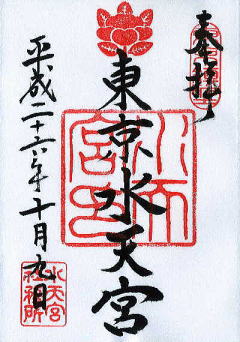 奉拝
東京水天宮
平成二十六年十月九日
水天宮
社務所